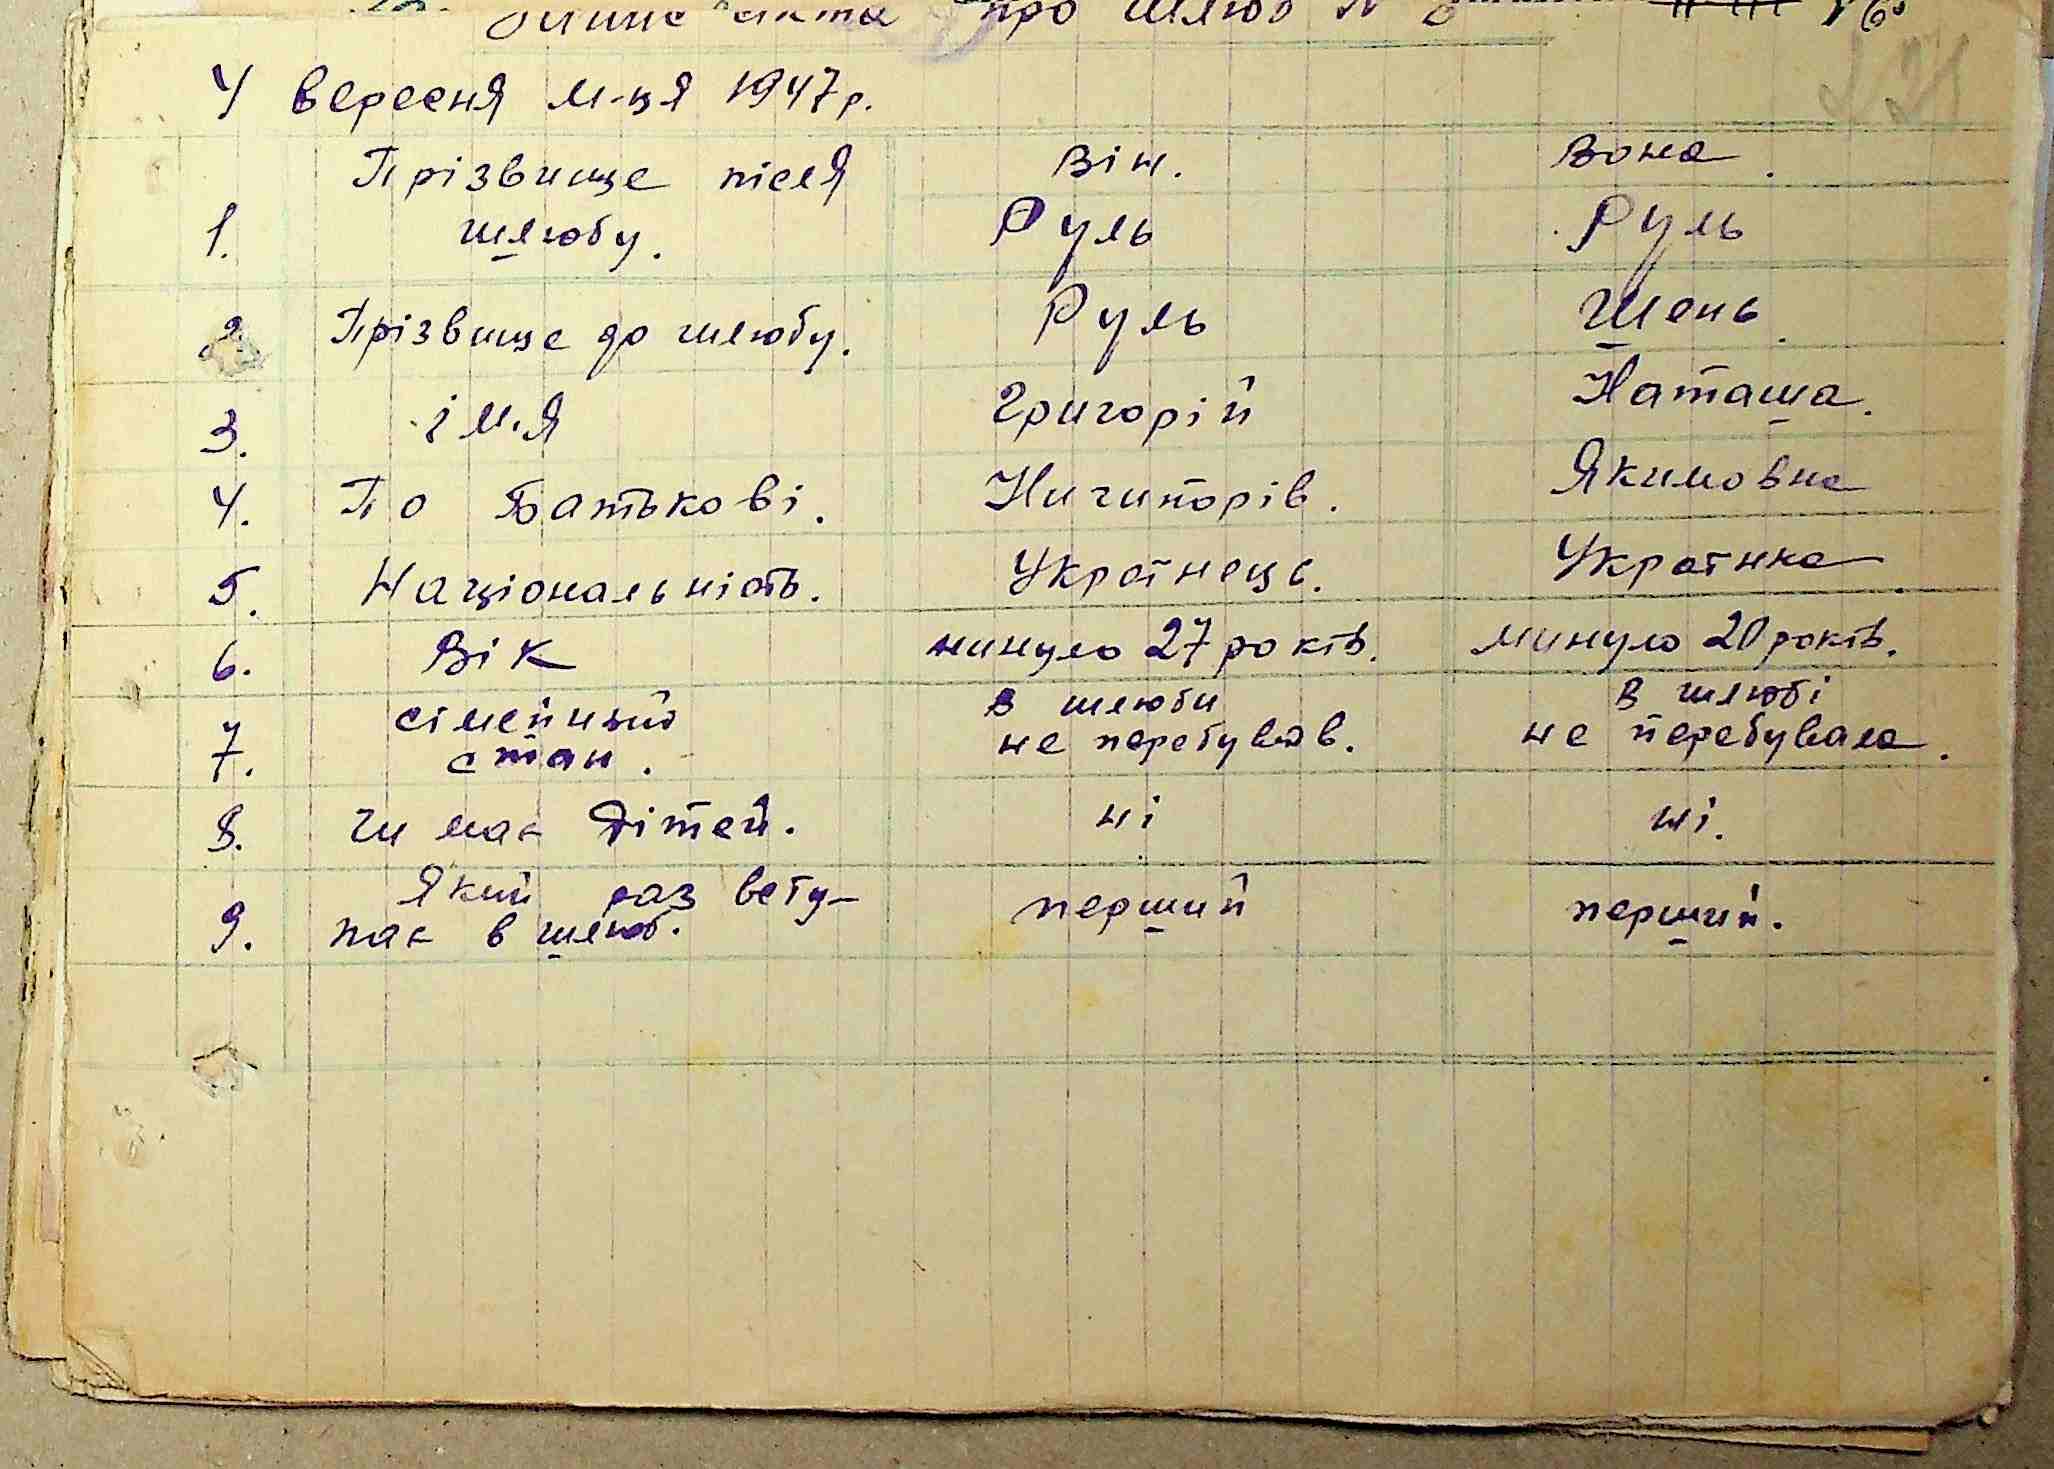 акта про шлюб №
4 вересня м-ця 1947 р.
Прізвище після він. вона.
1. шлюбу. Руль Руль
2. Прізвище до шлюбу. Руль Шень.
3. імʼя Григорій Наташа.
4. По Батькові. Ничипорів. Якимовна
5. Національність. Українець. Українка.
6. Вік минуло 27 років. минуло 20 років.
сімейний в шлюби в шлюбі
7. стан. не перебував. не перебувала.
8. чи має дітей. ні ні.
Який раз всту-
9. пає в шлюб. перший перший.